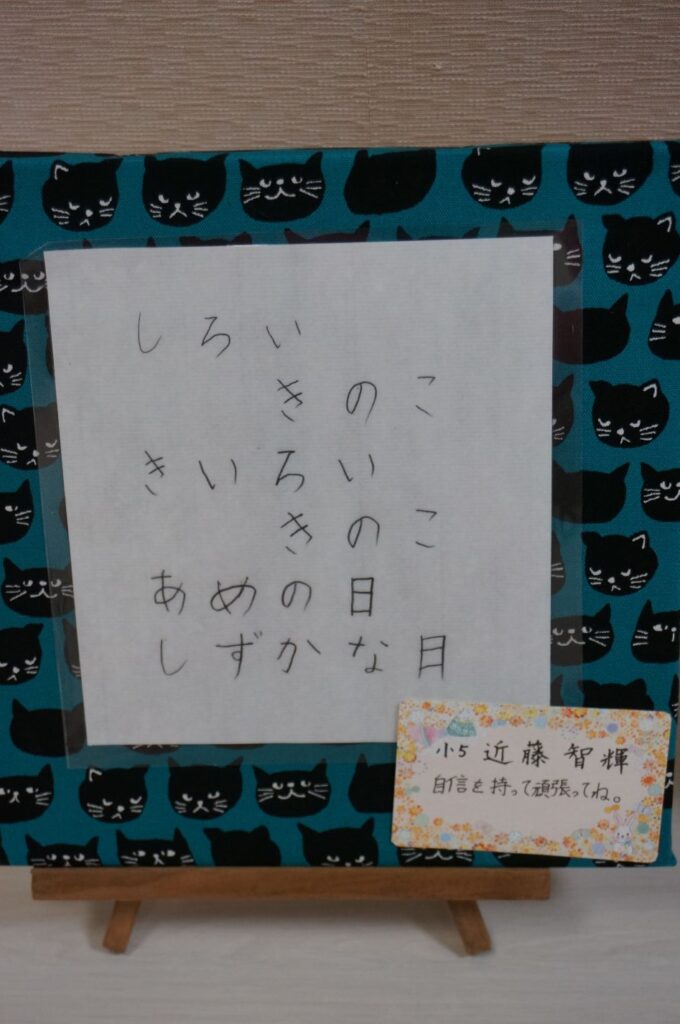 しろい
きのこ
きいろい
きのこ
あめの日
しずかな日
小5 近藤智輝
自信を持って頑張ってね。